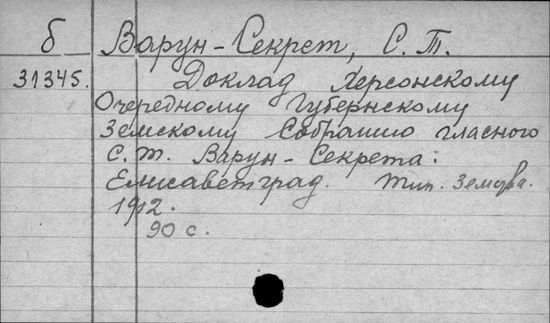 б Варун-Секрет, С. Т.
31345. Доклад Херсонскому
Очередному Губернскому
Земскому Собранию гласного
С. Т. Варун-Секрета:
Елисаветград. Тип. Земства.
1912.
90 с.